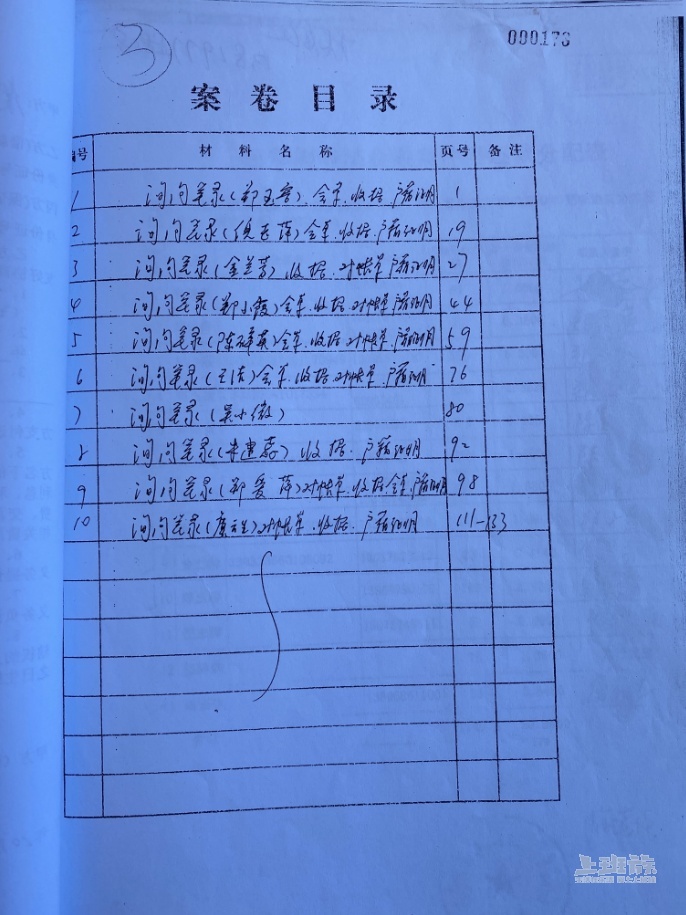 3
000173
案卷目录
编号 材料名称 页号 备注
1 询问笔录(郑玉香)、会单、收据、户籍证明 1
2 询问笔录(倪玉萍)会单、收据、户籍证明 19
3 询问笔录(金兰芳)、收据、对帐单、户籍证明 27
4 询问笔录(郑小霞)会单、收据、对帐单、户籍证明 44
5 询问笔录(陈)会单、收据、对帐单、户籍证明 59
6 询问笔录(王洁)会单、收据、对帐单、户籍证明 76
7 询问笔录(吴小微) 80
8 询问笔录(朱建)、收据、户籍证明 92
9 询问笔录(郑爱萍)对帐单、收据、会单、户籍证明 98
10 询问笔录()对帐单、收据、户籍证明 111-133
上班族